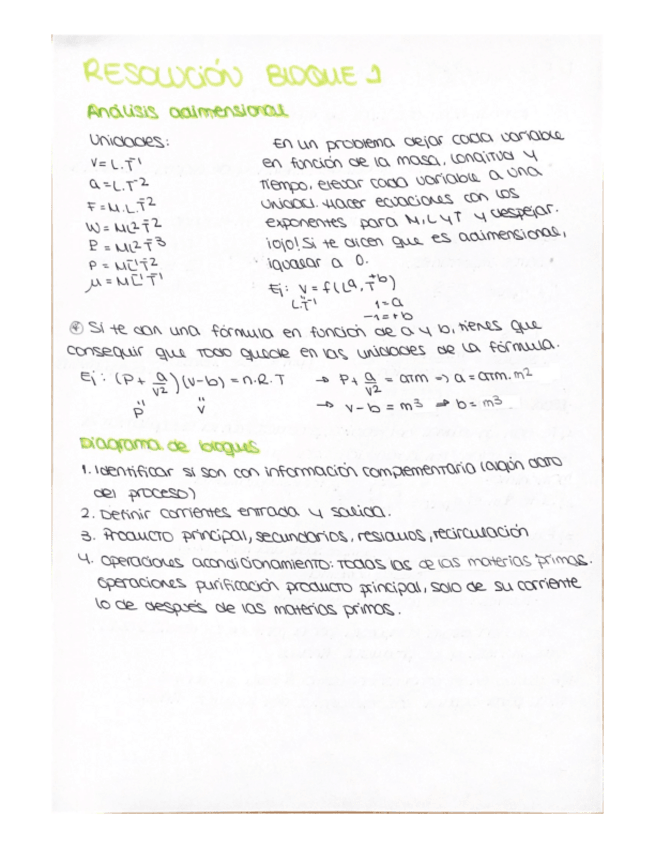 RESOLUCIÓN BLOQUE 1
Análisis adimensional
Unidades:
V = L.T⁻¹
a = L.T⁻²
F = M.L.T⁻²
W = ML²T⁻²
P = ML²T⁻³
P = ML⁻¹T⁻²
μ = ML⁻¹T⁻¹
En un problema dejar cada variable
en función de la masa, longitud y
tiempo, elevar cada variable a una
unidad. Hacer ecuaciones con los
exponentes para M, L y T y despejar.
¡ojo! Si te dicen que es adimensional,
igualar a 0.
Ej: v = f(Lᵃ, T⁺ᵇ)
L.T⁻¹
1 = a
-1 = +b
* Si te dan una fórmula en función de a y b, tienes que
conseguir que todo quede en las unidades de la fórmula.
Ej: (P + a/v2)(v-b) = n.R.T → P + a/v2 = atm => a = atm.m²
" "
P V → v-b = m³ => b = m³
Diagrama de bloques
1. Identificar si son con información complementaria (algún dato
del proceso)
2. Definir corrientes entrada y salida.
3. Producto principal, secundarios, residuos, recirculación
4. operaciones acondicionamiento: todas las de las materias primas.
operaciones purificación producto principal, solo de su corriente
lo de después de las materias primas.